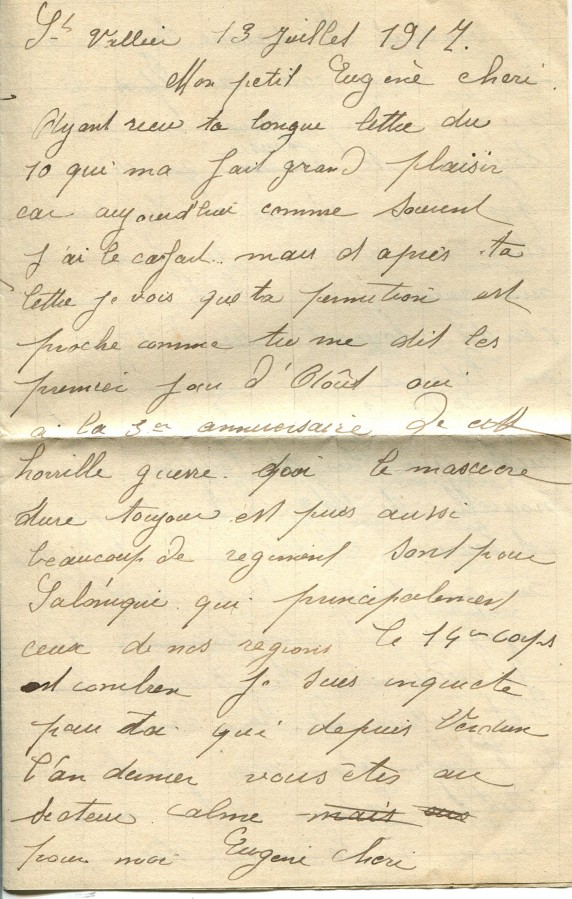 St Vallier 13 Juillet 1917.
Mon petit Eugène cheri.
Ayant recu ta longue lettre du
10 qui ma fait grand plaisir
car aujourd'hui comme souvent
j'ai le cafard. mais d'après ta
lettre je vois que ta permition est
proche comme tu me dit les
premier jour d'Août oui
a la 3er anniversaire de cette
horrille guerre. quoi le massacre
dure toujour est puis aussi
beaucoup de regiment sont pour
Salonique qui principalement
ceux de nos regions le 14em corps
est combien je suis inquiete
pour toi qui depuis Verdun
l'an dernier vous êtes au
secteur calme mais
pour moi Eugene cheri